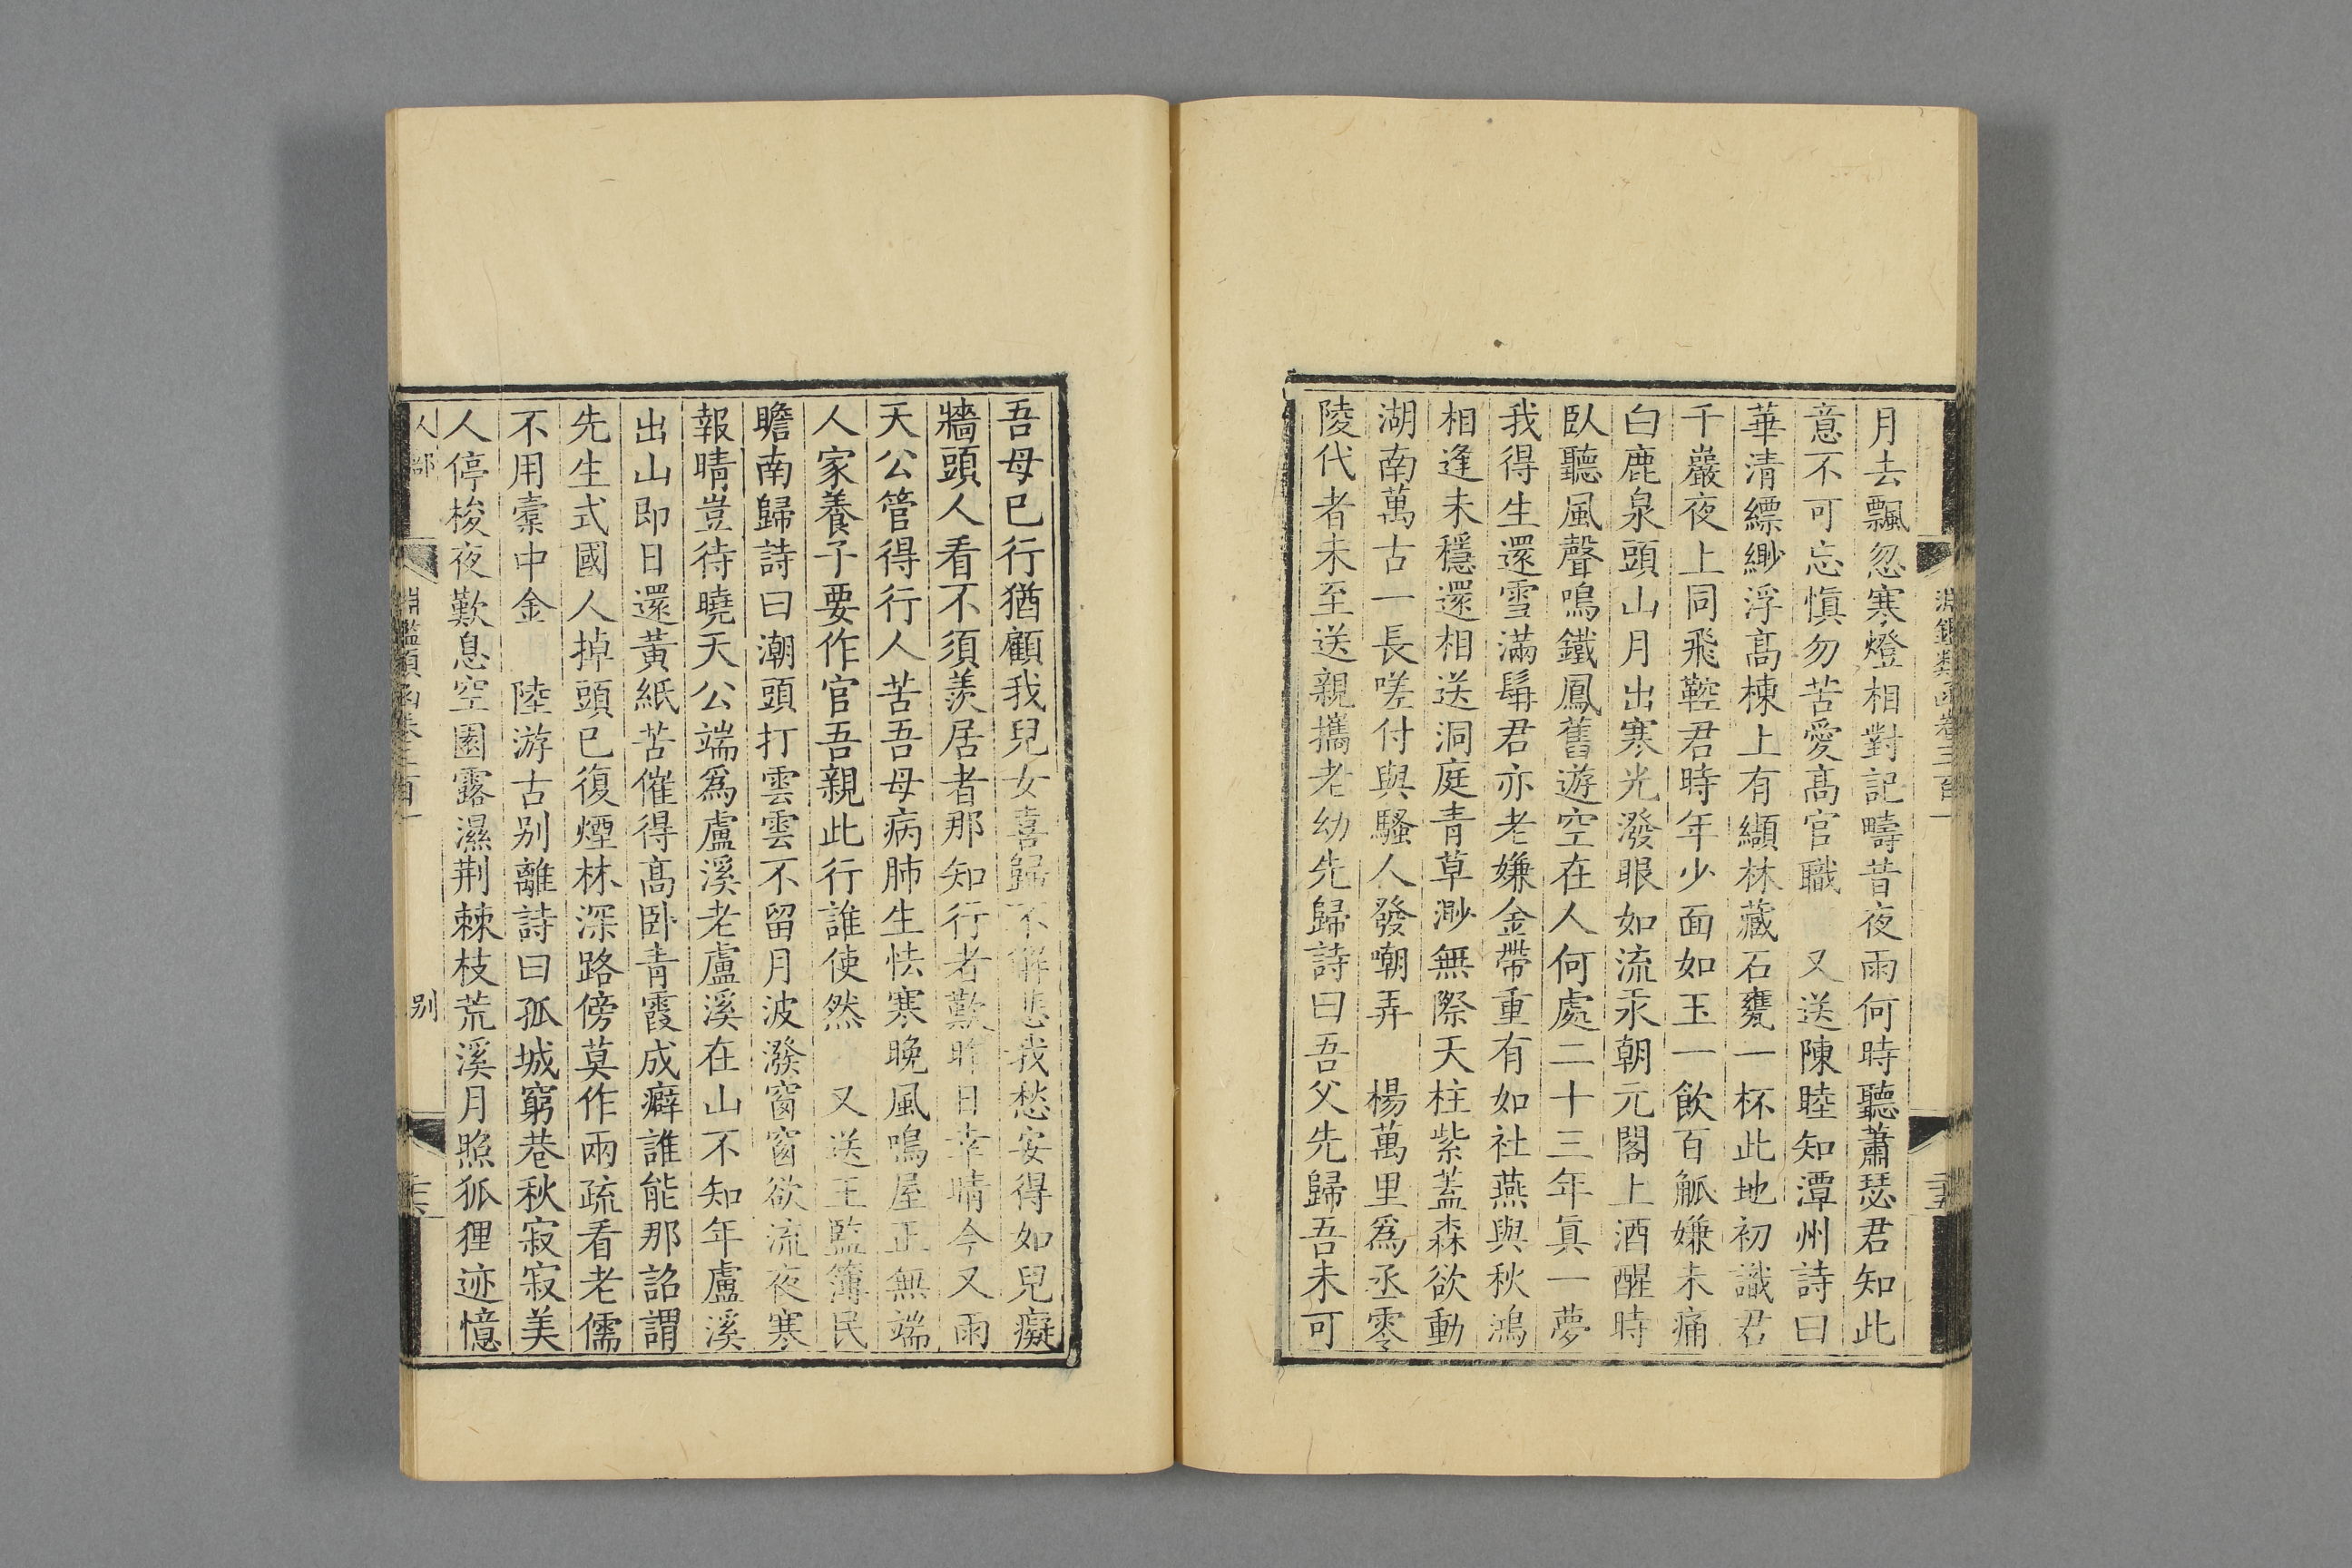 月去飄忽寒燈相對記疇昔夜雨何時聽蕭瑟君知此
意不可忘愼勿苦愛髙官職 又送陳睦知潭州詩曰
華清縹緲浮髙棟上有纈林藏石甕一杯此地初識君
千巖夜上同飛鞚君時年少面如玉一飲百觚嫌未痛
白鹿泉頭山月出寒光潑眼如流汞朝元閣上酒醒時
臥聽風聲鳴鐵鳳舊遊空在人何處二十三年眞一夢
我得生還雪滿髯君亦老嫌金帶重有如社燕與秋鴻
相逢未穩還相送洞庭青草渺無際天柱紫蓋森欲動
湖南萬古一長嗟付與騷人發嘲弄 楊萬里爲丞零
陵代者未至送親攜老幼先歸詩曰吾父先歸吾未可
吾母已行猶顧我兒女喜歸不解悲我愁安得如兒癡
牆頭人看不須羨居者那知行者歎昨日幸晴今又雨
天公管得行人苦吾母病肺生怯寒晚風鳴屋正無端
人家養子要作官吾親此行誰使然 又送王監簿民
瞻南歸詩曰潮頭打雲雲不留月波潑窗窗欲流夜寒
報晴豈待曉天公端爲盧溪老盧溪在山不知年盧溪
出山即日還黃紙苦催得髙卧青霞成癖誰能那詔謂
先生式國人掉頭已復煙林深路傍莫作兩疏看老儒
不用橐中金 陸游古别離詩曰孤城窮巷秋寂寂美
人停梭夜歎息空園露濕荆棘枝荒溪月照狐狸迹憶
人部
淵鑑類函卷三百一
别